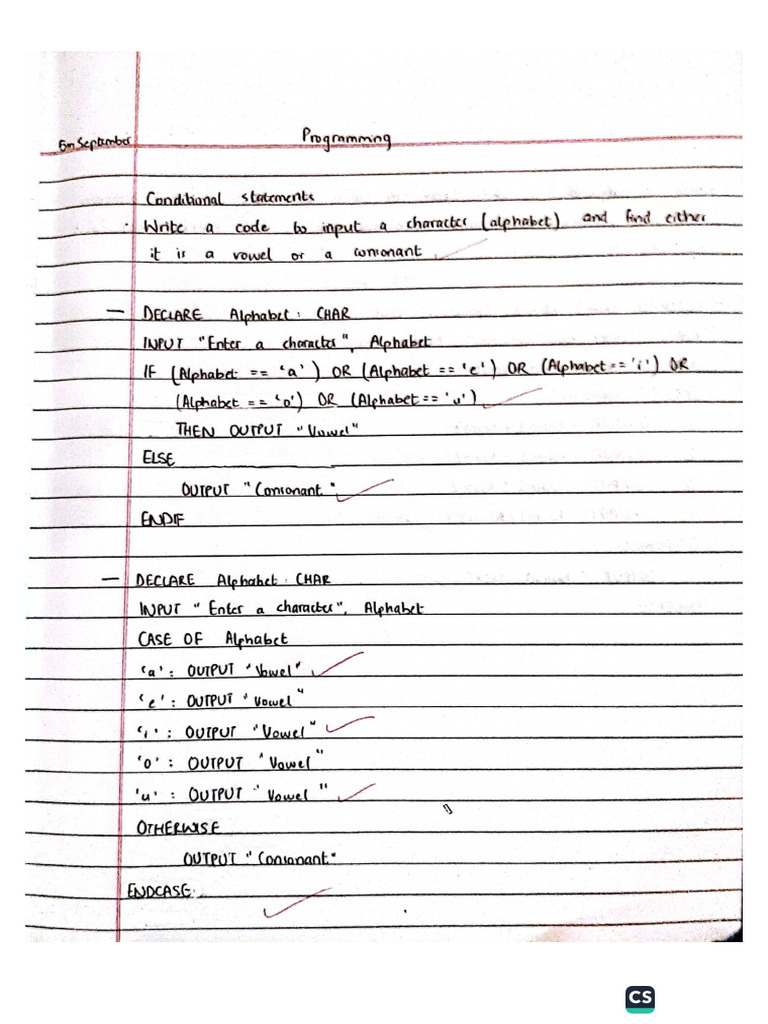 5th September
Programming
Conditional statements
. Write a code to input a character (alphabet) and find either
it is a vowel or a consonant
— DECLARE Alphabet : CHAR
INPUT "Enter a character", Alphabet
IF (Alphabet == 'a') OR (Alphabet == 'e') OR (Alphabet == 'i') OR
(Alphabet == 'o') OR (Alphabet == 'u')
THEN OUTPUT "Vowel"
ELSE
OUTPUT "Consonant"
ENDIF
— DECLARE Alphabet : CHAR
INPUT "Enter a character", Alphabet
CASE OF Alphabet
'a' : OUTPUT "Vowel"
'e' : OUTPUT "Vowel"
'i' : OUTPUT "Vowel"
'o' : OUTPUT "Vowel"
'u' : OUTPUT "Vowel"
OTHERWISE
OUTPUT "Consonant"
ENDCASE
CS